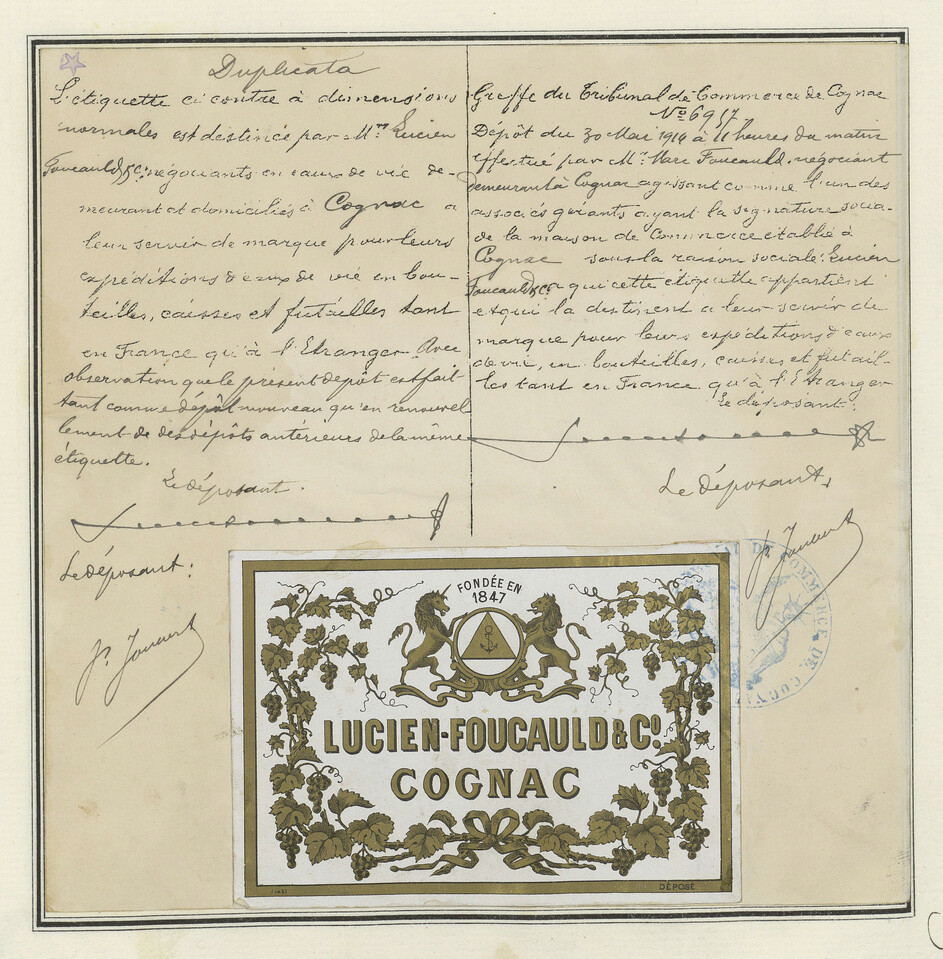 Duplicata
L'étiquette ci contre à dimensions
normales est destinée par Mrs Lucien
Foucauld & Cie négociants en eaux de vie de-
meurant et domiciliés à Cognac a
leur servir de marque pour leurs
expéditions d'eaux de vie en bou-
teilles, caisses et futailles tant
en France qu'à l'Etranger. Avec
observation que le présent depôt est fait
tant comme dépôt nouveau qu'en renouvel
lement de des dépôts antérieurs de la même
étiquette.
Le déposant.
Le déposant:
Greffe du Tribunal de Commerce de Cognac
No 6957
Dépôt du 30 Mai 1914 à 11 heures du matin
effectué par Mr Marc Foucauld, négociant
demeurant à Cognac agissant comme l'un des
associés gérants ayant la signature socia-
le de la maison de Commerce établie à
Cognac sous la raison sociale: Lucien
Foucauld & Co a qui cette étiquette appartient
et qui la destinent a leur servir de
marque pour leurs expéditions d'eaux
de vie, en bouteilles, caisses et futail-
les tant en France qu'à l'Etranger
Le déposant:
Le déposant,
FONDÉE EN
1847
LUCIEN-FOUCAULD & Co.
COGNAC
DÉPOSÉ
COMMERCE DE COGNAC